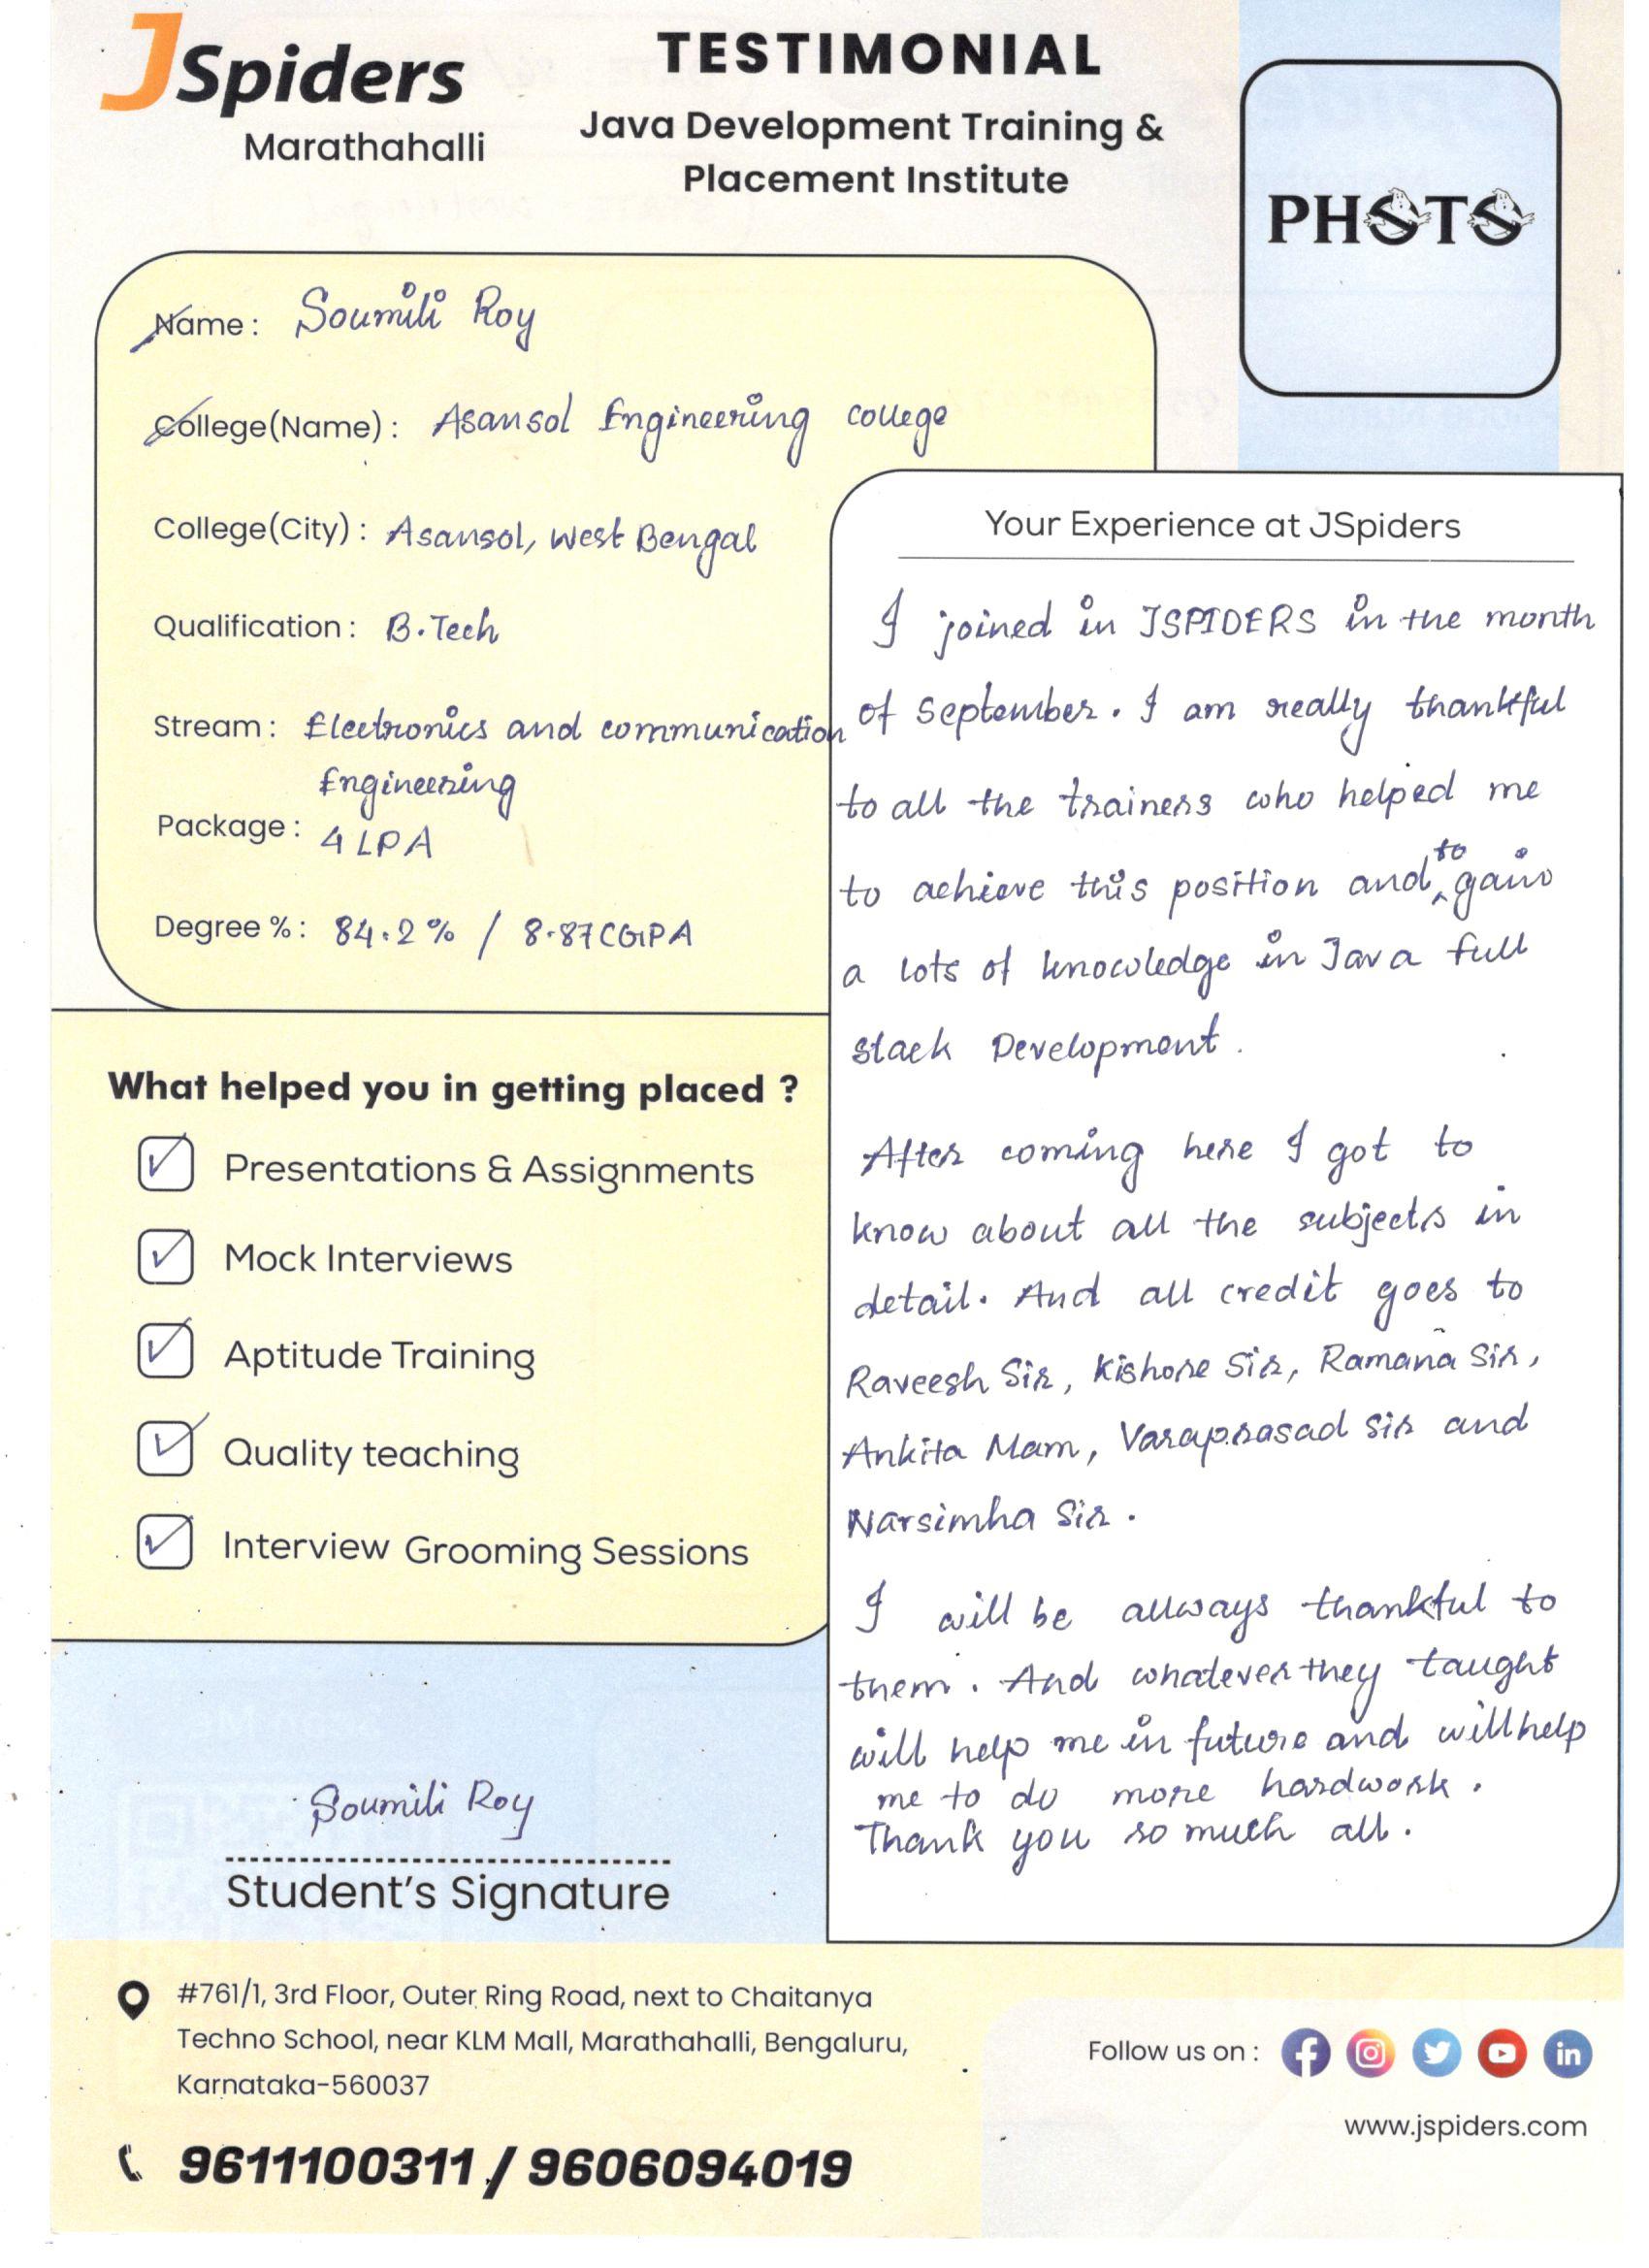 JSpiders
Marathahalli
TESTIMONIAL
Java Development Training &
Placement Institute
PHOTO
Name : Soumili Roy
College(Name) : Asansol Engineering college
College(City) : Asansol, West Bengal
Qualification : B.Tech
Stream : Electronics and communication
Engineering
Package : 4 LPA
Degree % : 84.2% / 8.87 CGPA
What helped you in getting placed ?
Presentations & Assignments
Mock Interviews
Aptitude Training
Quality teaching
Interview Grooming Sessions
Soumili Roy
Student's Signature
Your Experience at JSpiders
I joined in JSPIDERS in the month
of September. I am really thankful
to all the trainers who helped me
to achieve this position and to gain
a lots of knowledge in Java full
stack Development.
After coming here I got to
know about all the subjects in
detail. And all credit goes to
Raveesh Sir, Kishore Sir, Ramana Sir,
Ankita Mam, Varaprasad Sir and
Narsimha Sir.
I will be allways thankful to
them. And whatever they taught
will help me in future and will help
me to do more hardwork.
Thank you so much all.
#761/1, 3rd Floor, Outer Ring Road, next to Chaitanya
Techno School, near KLM Mall, Marathahalli, Bengaluru,
Karnataka-560037
9611100311 / 9606094019
Follow us on :
www.jspiders.com